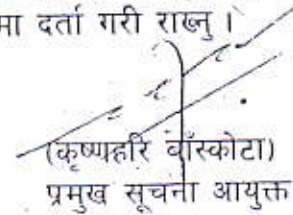 मा दर्ता गरी राख्नु ।
(कृष्णहरि बाँस्कोटा)
प्रमुख सूचना आयुक्त